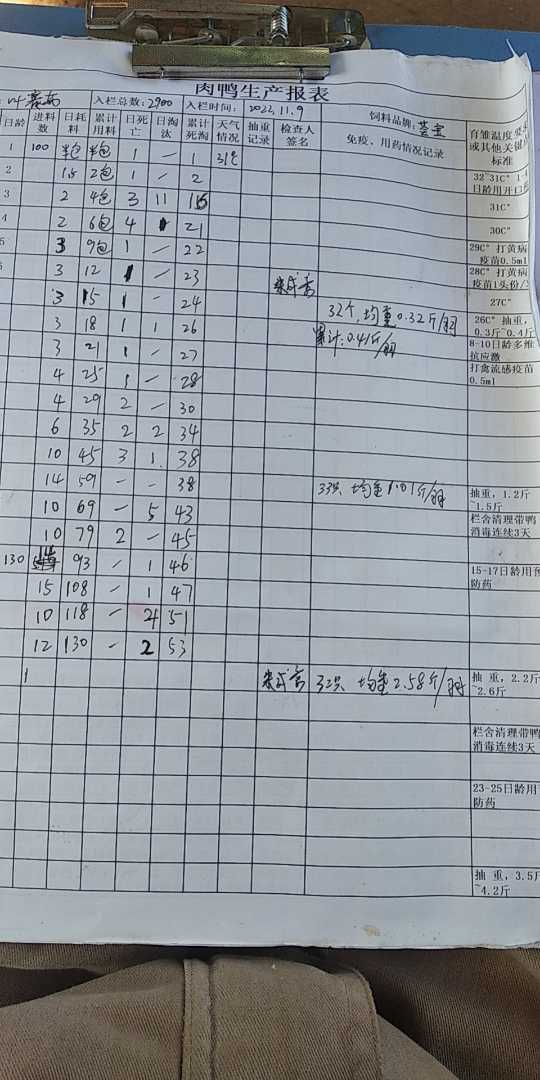 肉鸭生产报表
入栏总数: 2900 入栏时间: 2022.11.9 饲料品牌:
日龄 进料数 日耗料 累计用料 日死亡 日淘汰 累计死淘 天气情况 抽重记录 检查人签名 免疫、用药情况记录 育雏温度要求或其他关键 标准
1 100 半包 半包 1 — 1 31℃
32~31C° 1-
日龄用开口
2 1.5 2包 1 — 2
3 2 4包 3 11 16 31C°
4 2 6包 4 21 30C°
5 3 9包 1 — 22 29C° 打黄病
疫苗0.5ml
3 12 1 — 23 28C° 打黄病
疫苗1头份/
3 15 1 — 24 27C°
3 18 1 1 26 32个,均重0.32斤/羽 26C° 抽重,
0.3斤~0.4斤
3 21 1 — 27 累计:0.41斤/羽 8-10日龄多维
抗应激
4 25 1 — 28 打禽流感疫苗
0.5ml
4 29 2 — 30
6 35 2 2 34
10 45 3 1 38
14 59 - - 38 33只 均重1.01斤/羽 抽重,1.2斤
~1.5斤
10 69 — 5 43 栏舍清理带鸭
消毒连续3天
10 79 2 — 45
130 14 93 — 1 46 15-17日龄用预
防药
15 108 — 1 47
10 118 — 4 51
12 130 — 2 53
1 32只 均重2.58斤/羽 抽 重,2.2斤
~2.6斤
栏舍清理带鸭
消毒连续3天
23-25日龄用
防药
抽 重,3.5斤
~4.2斤